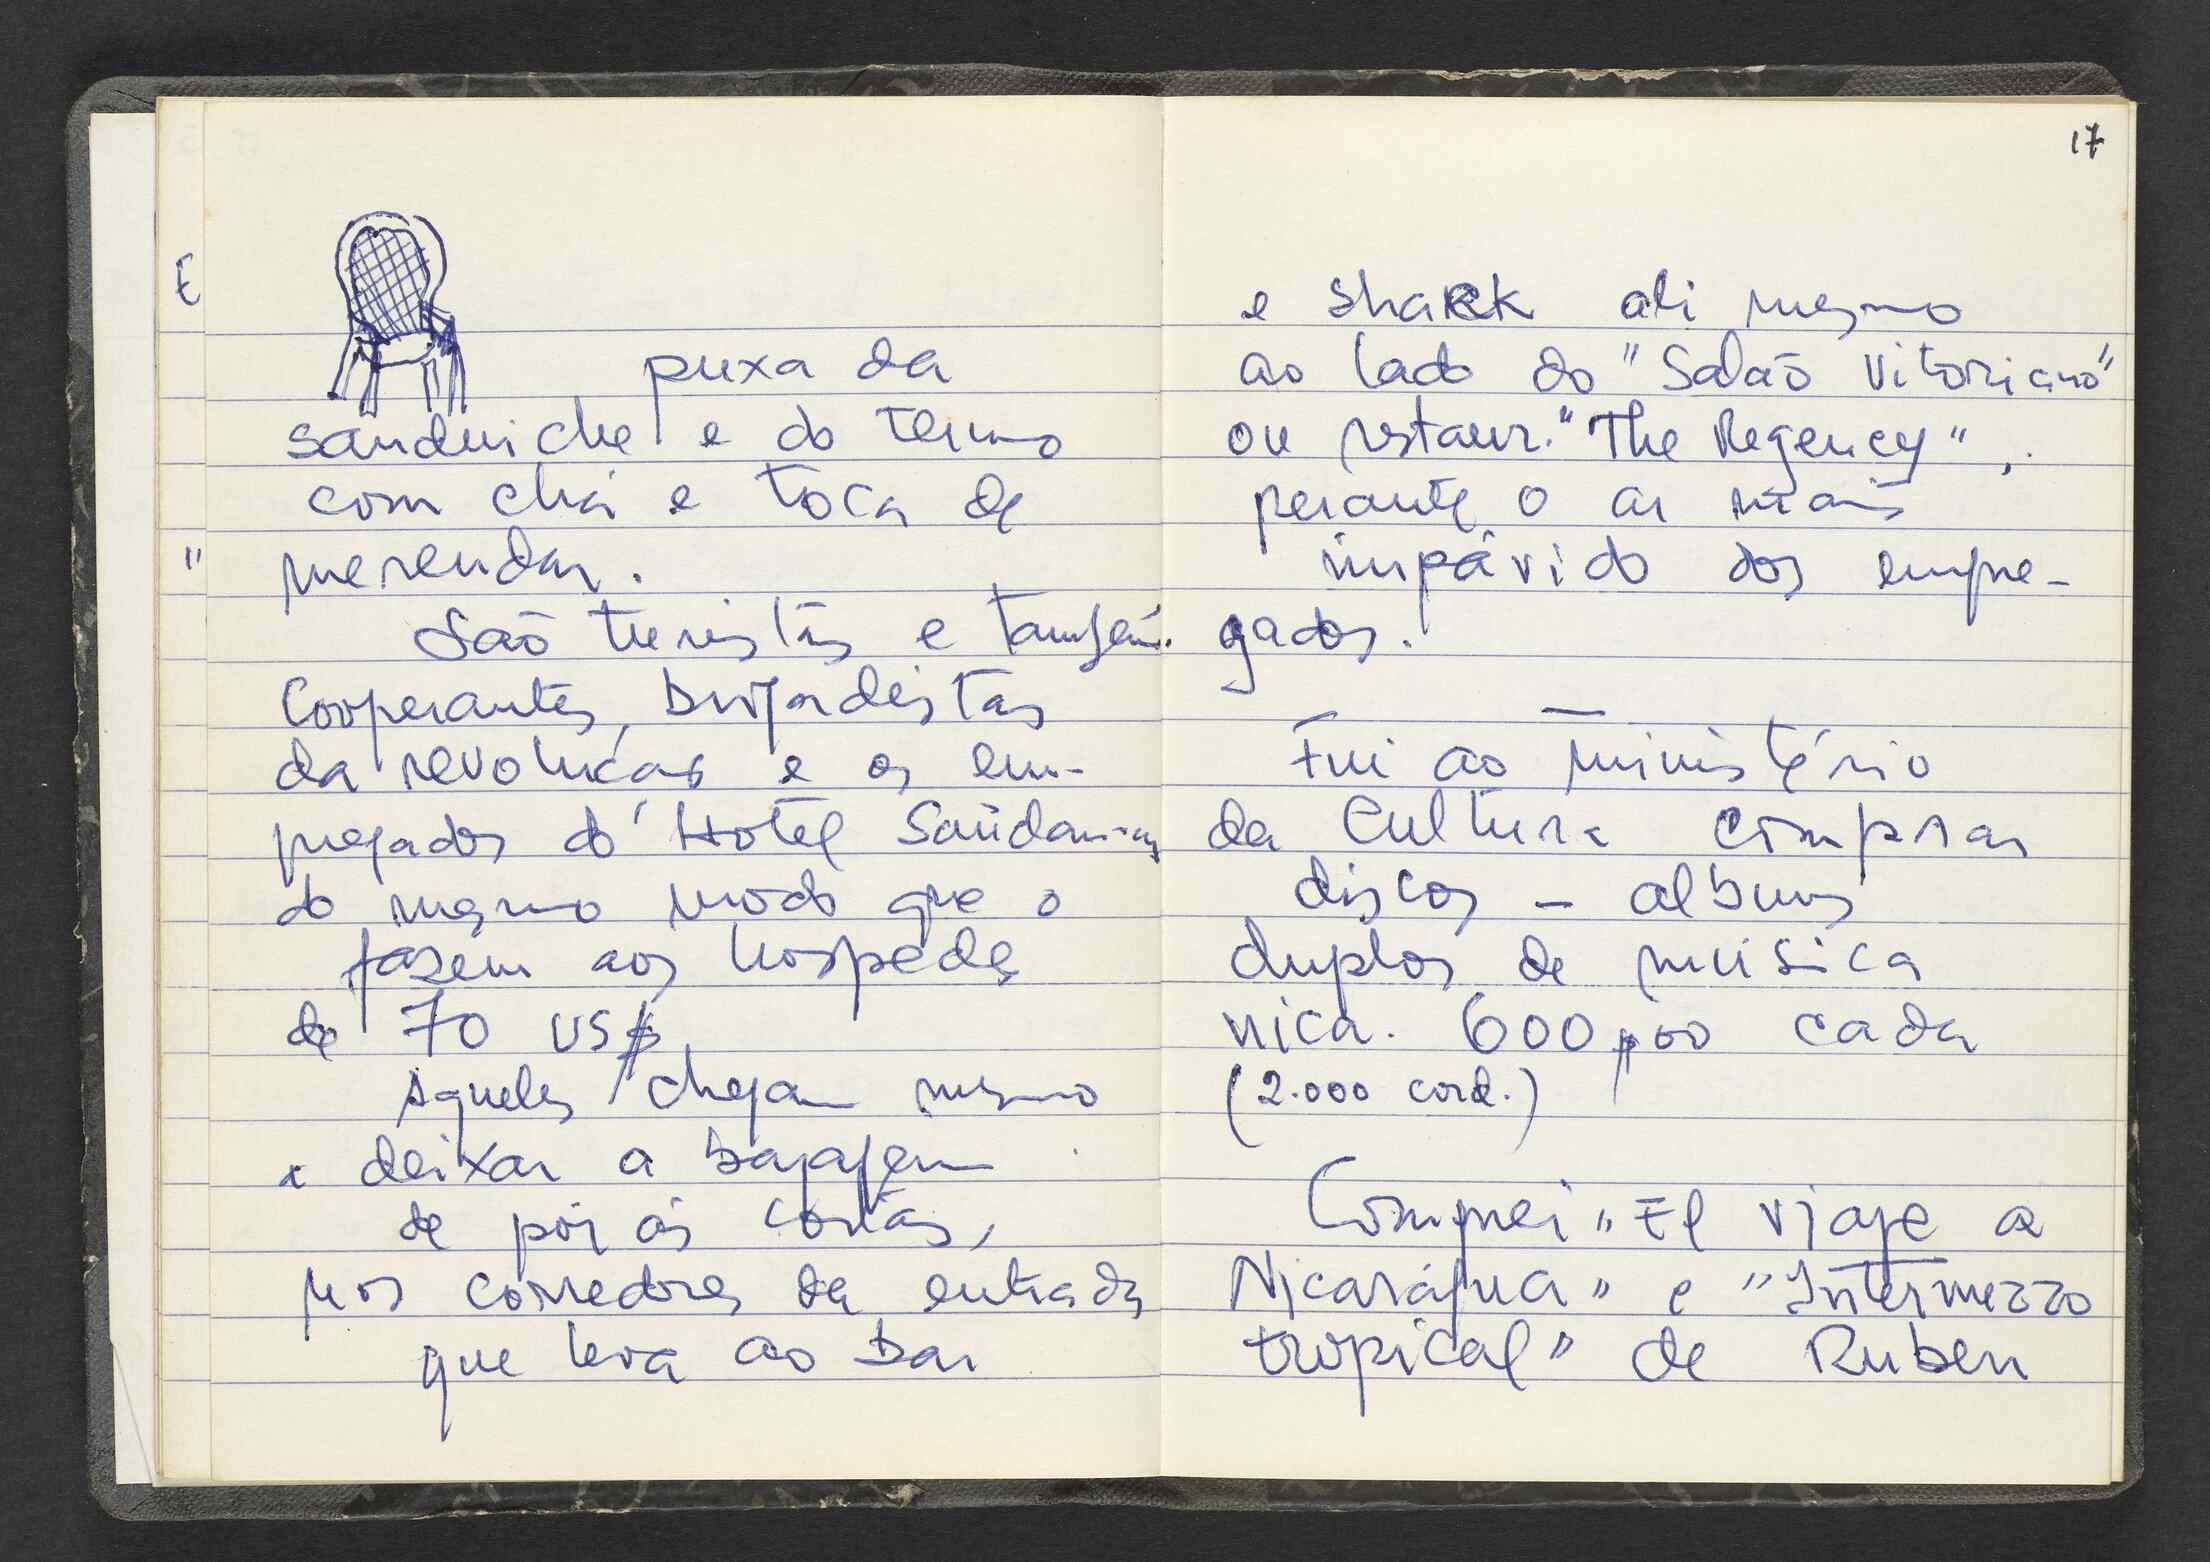 E
"
puxa da
sanduiche e do termo
com chá e toca de
merendar.
São turistas e também
Cooperantes, brigadistas
da revolução e os em-
pregados do Hotel Saúdam-os
do mesmo modo que o
fazem aos hospedes
de 70 US$
Aqueles chegam mesmo
a deixar a bagagem
de pôr às costas,
nos corredores da entrada
que leva ao bar
17
e ali mesmo
ao lado do "Salão Vitoriano"
ou restaur. "The Regency",
perante o ar mais
impávido dos empre-
gados.
—
Fui ao Ministério
da Cultura comprar
discos – albuns
duplos de música
nica. 600$00 cada
(2.000 cord.)
Comprei "El viaje a
Nicarágua" e "Intermezzo
tropical" de Ruben